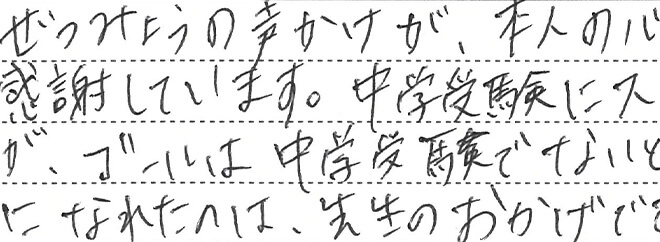 ぜつみょうの声かけが、本人の心
感謝しています。中学受験にス
が、ゴールは中学受験でないと
になれたのは、先生のおかげで